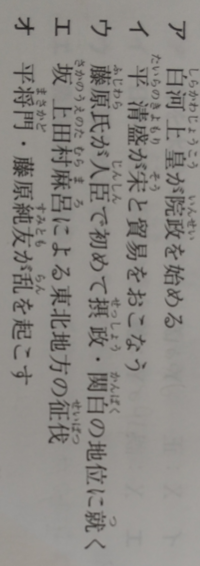 ア 白河上皇が院政を始める
イ 平清盛が宋と貿易をおこなう
ウ 藤原氏が人臣で初めて摂政・関白の地位に就く
エ 坂上田村麻呂による東北地方の征伐
オ 平将門・藤原純友が乱を起こす